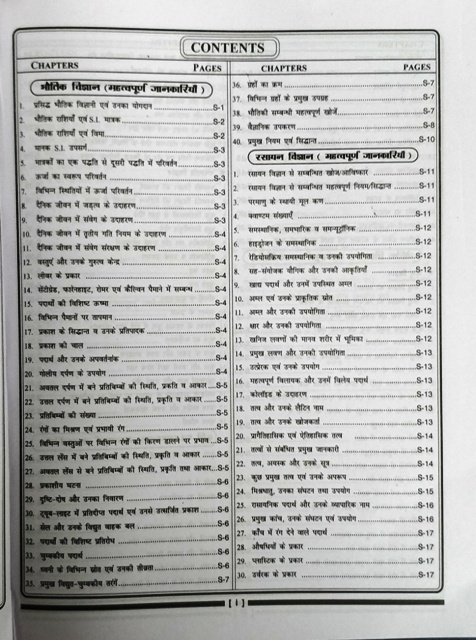 CONTENTS
CHAPTERS PAGES
भौतिक विज्ञान (महत्वपूर्ण जानकारियाँ)
1. प्रसिद्ध भौतिक विज्ञानी एवं उनका योगदान S-1
2. भौतिक राशियाँ एवं S.I. मात्रक S-2
3. भौतिक राशियाँ एवं विमा S-2
4. मानक S.I. उपसर्ग S-3
5. मात्रकों का एक पद्धति से दूसरी पद्धति में परिवर्तन S-3
6. ऊर्जा का स्वरूप परिवर्तन S-3
7. विभिन्न स्थितियों में ऊर्जा परिवर्तन S-3
8. दैनिक जीवन में जड़त्व के उदाहरण S-3
9. दैनिक जीवन में संवेग के उदाहरण S-3
10. दैनिक जीवन में तृतीय गति नियम के उदाहरण S-4
11. दैनिक जीवन में संवेग संरक्षण के उदाहरण S-4
12. वस्तुएं और उनके गुरुत्व केन्द्र S-4
13. लोवर के प्रकार S-4
14. सेंटीग्रेड, फारेनहाइट, रोमर एवं कैल्विन पैमाने में सम्बन्ध S-4
15. पदार्थों की विशिष्ट ऊष्मा S-4
16. विभिन्न पैमानों पर तापमान S-4
17. प्रकाश के सिद्धान्त व उनके प्रतिपादक S-4
18. प्रकाश की चाल S-4
19. पदार्थ और उनके अपवर्तनांक S-4
20. गोलीय दर्पण के उपयोग S-4
21. अवतल दर्पण में बने प्रतिबिम्बों की स्थिति, प्रकृति व आकार S-5
22. उत्तल दर्पण में बने प्रतिबिम्बों की स्थिति, प्रकृति व आकार S-5
23. प्रतिबिम्बों की संख्या S-5
24. रंगों का मिश्रण एवं प्रभावी रंग S-5
25. विभिन्न वस्तुओं पर विभिन्न रंगों की किरण डालने पर प्रभाव S-5
26. उत्तल लेंस से बने प्रतिबिम्बों की स्थिति, प्रकृति व आकार S-5
27. अवतल लेंस से बने प्रतिबिम्बों की स्थिति, प्रकृति तथा आकार S-5
28. प्रकाशीय घटना S-6
29. दृष्टि-दोष और उनका निवारण S-6
30. ट्यूब-लाइट में प्रतिदीप्त पदार्थ एवं उनसे उत्सर्जित प्रकाश S-6
31. सेल और उनके विद्युत वाहक बल S-6
32. पदार्थों की विशिष्ट प्रतिरोध S-6
33. चुम्बकीय पदार्थ S-6
34. ध्वनी के विभिन्न स्रोत एवं उनकी तीव्रता S-6
35. प्रमुख विद्युत-चुम्बकीय तरंगें S-7
CHAPTERS PAGES
36. ग्रहों का क्रम S-7
37. विभिन्न ग्रहों के प्रमुख उपग्रह S-7
38. भौतिकी सम्बन्धी महत्वपूर्ण खोजें S-7
39. वैज्ञानिक उपकरण S-8
40. प्रमुख नियम एवं सिद्धान्त S-10
रसायन विज्ञान ( महत्वपूर्ण जानकारियाँ)
1. रसायन विज्ञान से सम्बन्धित खोज/आविष्कार S-11
2. रसायन विज्ञान से सम्बन्धित महत्वपूर्ण नियम/सिद्धान्त S-11
3. परमाणु के स्थायी मूल कण S-11
4. क्वाण्टम संख्याएँ S-11
5. समस्थानिक, समभारिक व समन्यूट्रॉनिक S-12
6. हाइड्रोजन के समस्थानिक S-12
7. रेडियोसक्रिय समस्थानिक व उनकी उपयोगिता S-12
8. सह-संयोजक यौगिक और उनकी आकृतियाँ S-12
9. खाद्य पदार्थ और उनमें उपस्थित अम्ल S-12
10. अम्ल एवं उनके प्राकृतिक स्रोत S-12
11. अम्ल और उनकी उपयोगिता S-12
12. क्षार और उनकी उपयोगिता S-12
13. खनिज लवणों की मानव शरीर में भूमिका S-12
14. प्रमुख लवण और उनकी उपयोगिता S-13
15. उत्प्रेरक एवं उनके उपयोग S-13
16. महत्वपूर्ण विलायक और उनमें विलेय पदार्थ S-13
17. कोलॉइड के उदाहरण S-13
18. तत्व और उनके लैटिन नाम S-13
19. तत्व और उनके खोजकर्ता S-13
20. प्रागैतिहासिक एवं ऐतिहासिक तत्व S-14
21. तत्वों से संबंधित प्रमुख जानकारी S-14
22. तत्व, अयस्क और उनके सूत्र S-14
23. कुछ प्रमुख तत्व एवं उनके अपरूप S-15
24. मिश्रधातु, उनका संघटन तथा उपयोग S-15
25. रासायनिक पदार्थ और उनके व्यापारिक नाम S-16
26. प्रमुख कांच, उनके संघटन एवं उपयोग S-16
27. काँच में रंग देने वाले पदार्थ S-17
28. औषधियों के प्रकार S-17
29. प्लास्टिक के प्रकार S-17
30. उर्वरक के प्रकार S-17